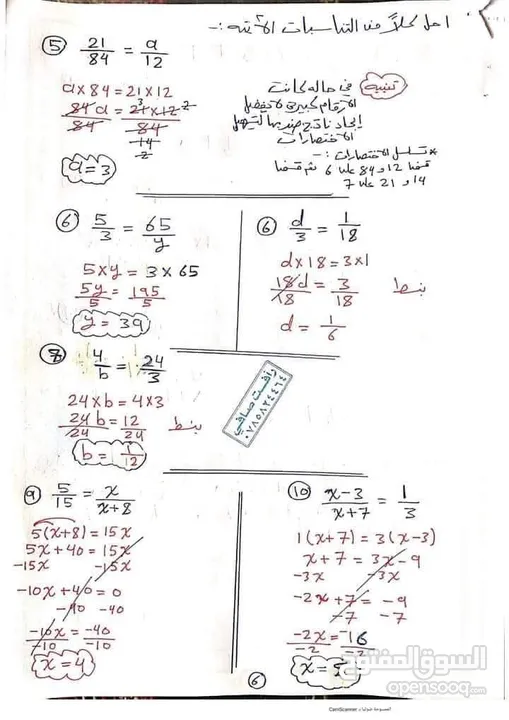 احل كلاً من التناسبات الآتية :-
5 21/84 = a/12
a×84 = 21×12
84a/84 = 21×12/84
a = 3
تنبيه في حالة كانت
الأرقام كبيرة لا يفضل
إيجاد ناتج ضربها لتسهيل
الاختصارات
* تسلسل الاختصارات :-
قسمنا 12 و 84 على 6 ثم قسمنا
14 و 21 على 7
6 5/3 = 65/y
5×y = 3×65
5y/5 = 195/5
y = 39
6 d/3 = 1/18
d×18 = 3×1
18d/18 = 3/18 بسط
d = 1/6
7 4/b = 24/3
24×b = 4×3
24b/24 = 12/24 بسط
b = 1/12
رأفت صافي
9 5/15 = x/x+8
5(x+8) = 15x
5x+40 = 15x
-15x -15x
-10x+40 = 0
-40 -40
-10x/-10 = -40/-10
x = 4
10 x-3/x+7 = 1/3
1(x+7) = 3(x-3)
x+7 = 3x-9
-3x -3x
-2x+7 = -9
-7 -7
-2x/-2 = -16/-2
x =
6
السوق المفتوح
opensooq.com
CamScanner